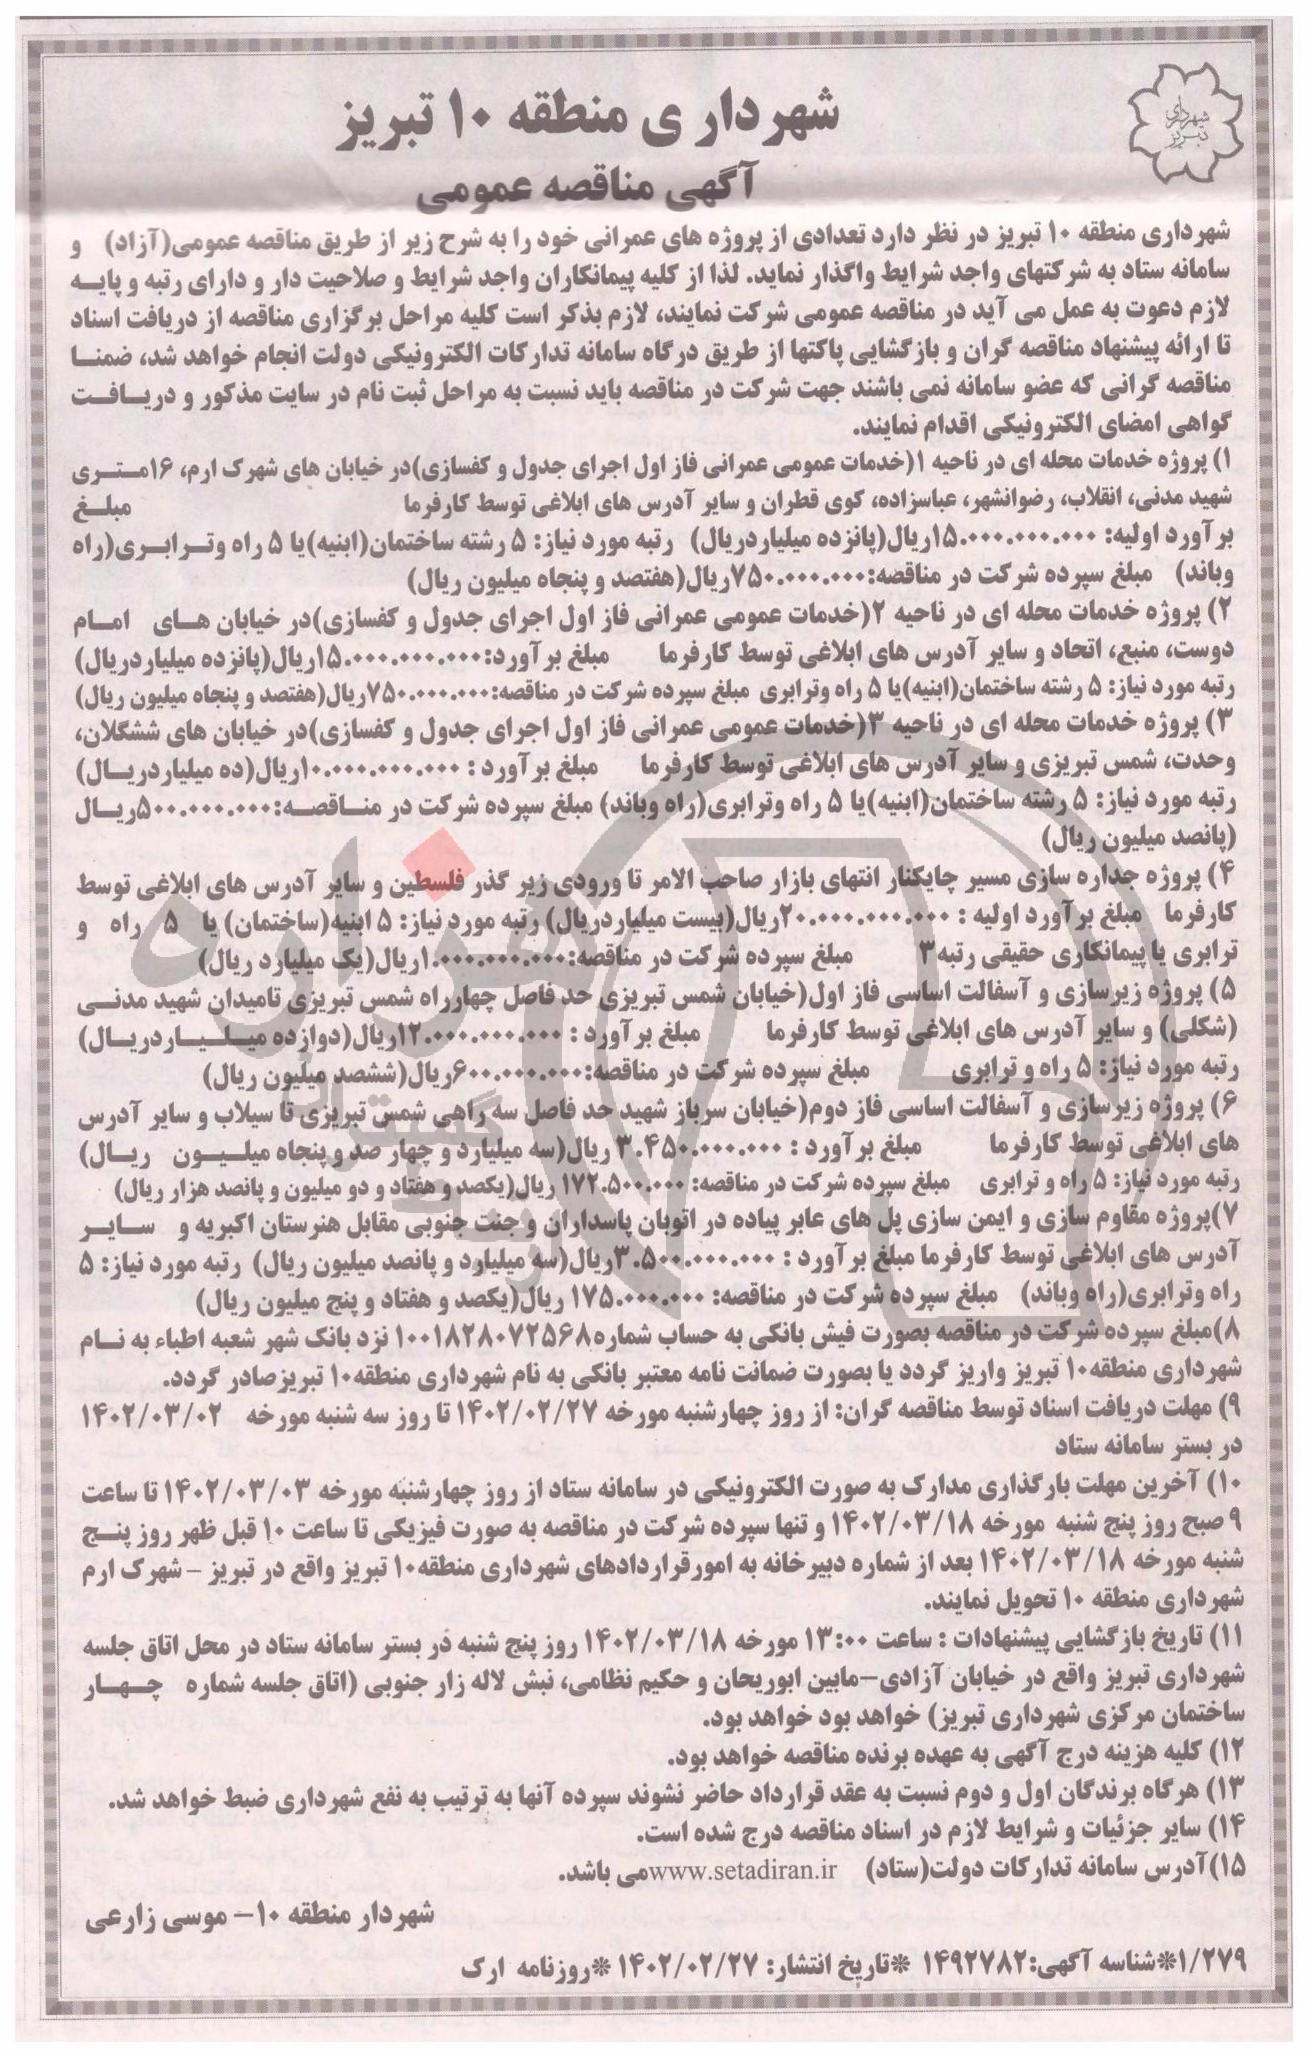 شهرداری تبریز
شهرداری منطقه ۱۰ تبریز
آگهی مناقصه عمومی
شهرداری منطقه ۱۰ تبریز در نظر دارد تعدادی از پروژه های عمرانی خود را به شرح زیر از طریق مناقصه عمومی(آزاد) و
سامانه ستاد به شرکتهای واجد شرایط واگذار نماید. لذا از کلیه پیمانکاران واجد شرایط و صلاحیت دار و دارای رتبه و پایه
لازم دعوت به عمل می آید در مناقصه عمومی شرکت نمایند، لازم بذکر است کلیه مراحل برگزاری مناقصه از دریافت اسناد
تا ارائه پیشنهاد مناقصه گران و بازگشایی پاکتها از طریق درگاه سامانه تدارکات الکترونیکی دولت انجام خواهد شد، ضمنا
مناقصه گرانی که عضو سامانه نمی باشند جهت شرکت در مناقصه باید نسبت به مراحل ثبت نام در سایت مذکور و دریافت
گواهی امضای الکترونیکی اقدام نمایند.
۱) پروژه خدمات محله ای در ناحیه ۱(خدمات عمومی عمرانی فاز اول اجرای جدول و کفسازی)در خیابان های شهرک ارم، ۱۶متری
شهید مدنی، انقلاب، رضوانشهر، عباسزاده، کوی قطران و سایر آدرس های ابلاغی توسط کارفرما مبلغ
برآورد اولیه: ۱۵.۰۰۰.۰۰۰.۰۰۰ریال(پانزده میلیاردریال) رتبه مورد نیاز: ۵ رشته ساختمان(ابنیه)یا ۵ راه وترابری(راه
وباند) مبلغ سپرده شرکت در مناقصه:۷۵۰.۰۰۰.۰۰۰ریال(هفتصد و پنجاه میلیون ریال)
۲) پروژه خدمات محله ای در ناحیه ۲(خدمات عمومی عمرانی فاز اول اجرای جدول و کفسازی)در خیابان های امام
دوست، منبع، اتحاد و سایر آدرس های ابلاغی توسط کارفرما مبلغ برآورد:۱۵.۰۰۰.۰۰۰.۰۰۰ریال(پانزده میلیاردریال)
رتبه مورد نیاز: ۵ رشته ساختمان(ابنیه)یا ۵ راه وترابری مبلغ سپرده شرکت در مناقصه:۷۵۰.۰۰۰.۰۰۰ریال(هفتصد و پنجاه میلیون ریال)
۳) پروژه خدمات محله ای در ناحیه ۳(خدمات عمومی عمرانی فاز اول اجرای جدول و کفسازی)در خیابان های ششگلان،
وحدت، شمس تبریزی و سایر آدرس های ابلاغی توسط کارفرما مبلغ برآورد : ۱۰.۰۰۰.۰۰۰.۰۰۰ریال(ده میلیاردریال)
رتبه مورد نیاز: ۵ رشته ساختمان(ابنیه)یا ۵ راه وترابری(راه وباند) مبلغ سپرده شرکت در مناقصه:۵۰۰.۰۰۰.۰۰۰ریال
(پانصد میلیون ریال)
۴) پروژه جداره سازی مسیر چایکنار انتهای بازار صاحب الامر تا ورودی زیر گذر فلسطین و سایر آدرس های ابلاغی توسط
کارفرما مبلغ برآورد اولیه : ۲۰.۰۰۰.۰۰۰.۰۰۰ریال(بیست میلیاردریال) رتبه مورد نیاز: ۵ ابنیه(ساختمان) یا ۵ راه و
ترابری یا پیمانکاری حقیقی رتبه۳ مبلغ سپرده شرکت در مناقصه:۱.۰۰۰.۰۰۰.۰۰۰ریال(یک میلیارد ریال)
۵) پروژه زیرسازی و آسفالت اساسی فاز اول(خیابان شمس تبریزی حد فاصل چهارراه شمس تبریزی تامیدان شهید مدنی
(شکلی) و سایر آدرس های ابلاغی توسط کارفرما مبلغ برآورد : ۱۲.۰۰۰.۰۰۰.۰۰۰ریال(دوازده میلیاردریال)
رتبه مورد نیاز: ۵ راه و ترابری مبلغ سپرده شرکت در مناقصه:۶۰۰.۰۰۰.۰۰۰ریال(ششصد میلیون ریال)
۶) پروژه زیرسازی و آسفالت اساسی فاز دوم(خیابان سرباز شهید حد فاصل سه راهی شمس تبریزی تا سیلاب و سایر آدرس
های ابلاغی توسط کارفرما مبلغ برآورد : ۳.۴۵۰.۰۰۰.۰۰۰ ریال(سه میلیارد و چهار صد و پنجاه میلیون ریال)
رتبه مورد نیاز: ۵ راه و ترابری مبلغ سپرده شرکت در مناقصه: ۱۷۲.۵۰۰.۰۰۰ ریال(یکصد و هفتاد و دو میلیون و پانصد هزار ریال)
۷)پروژه مقاوم سازی و ایمن سازی پل های عابر پیاده در اتوبان پاسداران و جنت جنوبی مقابل هنرستان اکبریه و سایر
آدرس های ابلاغی توسط کارفرما مبلغ برآورد : ۳.۵۰۰.۰۰۰.۰۰۰ریال(سه میلیارد و پانصد میلیون ریال) رتبه مورد نیاز: ۵
راه وترابری(راه وباند) مبلغ سپرده شرکت در مناقصه: ۱۷۵.۰۰۰.۰۰۰ ریال(یکصد و هفتاد و پنج میلیون ریال)
۸)مبلغ سپرده شرکت در مناقصه بصورت فیش بانکی به حساب شماره۱۰۰۱۸۲۸۰۷۲۵۶۸ نزد بانک شهر شعبه اطباء به نام
شهرداری منطقه۱۰ تبریز واریز گردد یا بصورت ضمانت نامه معتبر بانکی به نام شهرداری منطقه۱۰ تبریزصادر گردد.
۹) مهلت دریافت اسناد توسط مناقصه گران: از روز چهارشنبه مورخه ۱۴۰۲/۰۲/۲۷ تا روز سه شنبه مورخه ۱۴۰۲/۰۳/۰۲
در بستر سامانه ستاد
۱۰) آخرین مهلت بارگذاری مدارک به صورت الکترونیکی در سامانه ستاد از روز چهارشنبه مورخه ۱۴۰۲/۰۳/۰۳ تا ساعت
۹ صبح روز پنج شنبه مورخه ۱۴۰۲/۰۳/۱۸ و تنها سپرده شرکت در مناقصه به صورت فیزیکی تا ساعت ۱۰ قبل ظهر روز پنج
شنبه مورخه ۱۴۰۲/۰۳/۱۸ بعد از شماره دبیرخانه به امورقراردادهای شهرداری منطقه۱۰ تبریز واقع در تبریز - شهرک ارم
شهرداری منطقه ۱۰ تحویل نمایند.
۱۱) تاریخ بازگشایی پیشنهادات : ساعت ۱۳:۰۰ مورخه ۱۴۰۲/۰۳/۱۸ روز پنج شنبه در بستر سامانه ستاد در محل اتاق جلسه
شهرداری تبریز واقع در خیابان آزادی-مابین ابوریحان و حکیم نظامی، نبش لاله زار جنوبی (اتاق جلسه شماره چهار
ساختمان مرکزی شهرداری تبریز) خواهد بود خواهد بود.
۱۲) کلیه هزینه درج آگهی به عهده برنده مناقصه خواهد بود.
۱۳) هرگاه برندگان اول و دوم نسبت به عقد قرارداد حاضر نشوند سپرده آنها به ترتیب به نفع شهرداری ضبط خواهد شد.
۱۴) سایر جزئیات و شرایط لازم در اسناد مناقصه درج شده است.
۱۵)آدرس سامانه تدارکات دولت(ستاد) www.setadiran.irمی باشد.
شهردار منطقه ۱۰- موسی زارعی
۱/۲۷۹*شناسه آگهی:۱۴۹۲۷۸۲ *تاریخ انتشار: ۱۴۰۲/۰۲/۲۷ *روزنامه ارک